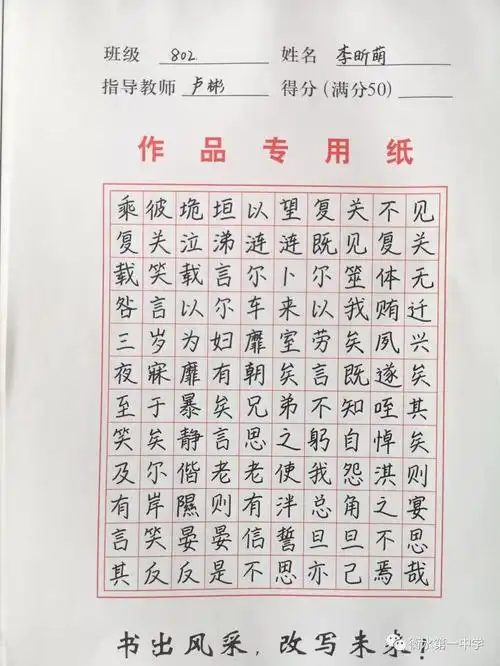 班级 802 姓名 李昕萌
指导教师 卢彬 得分(满分50)
作品专用纸
乘彼垝垣以望复关不见
复关泣涕涟涟既见复关
载笑载言尔卜尔筮体无
咎言以尔车来以我贿迁
三岁为妇靡室劳矣夙兴
夜寐靡有朝矣言既遂矣
至于暴矣兄弟不知咥其
笑矣静言思之躬自悼矣
及尔偕老老使我怨淇则
有岸隰则有泮总角之宴
言笑晏晏信誓旦旦不思
其反反是不思亦已焉哉
书出风采,改写未来!
衡水第一中学